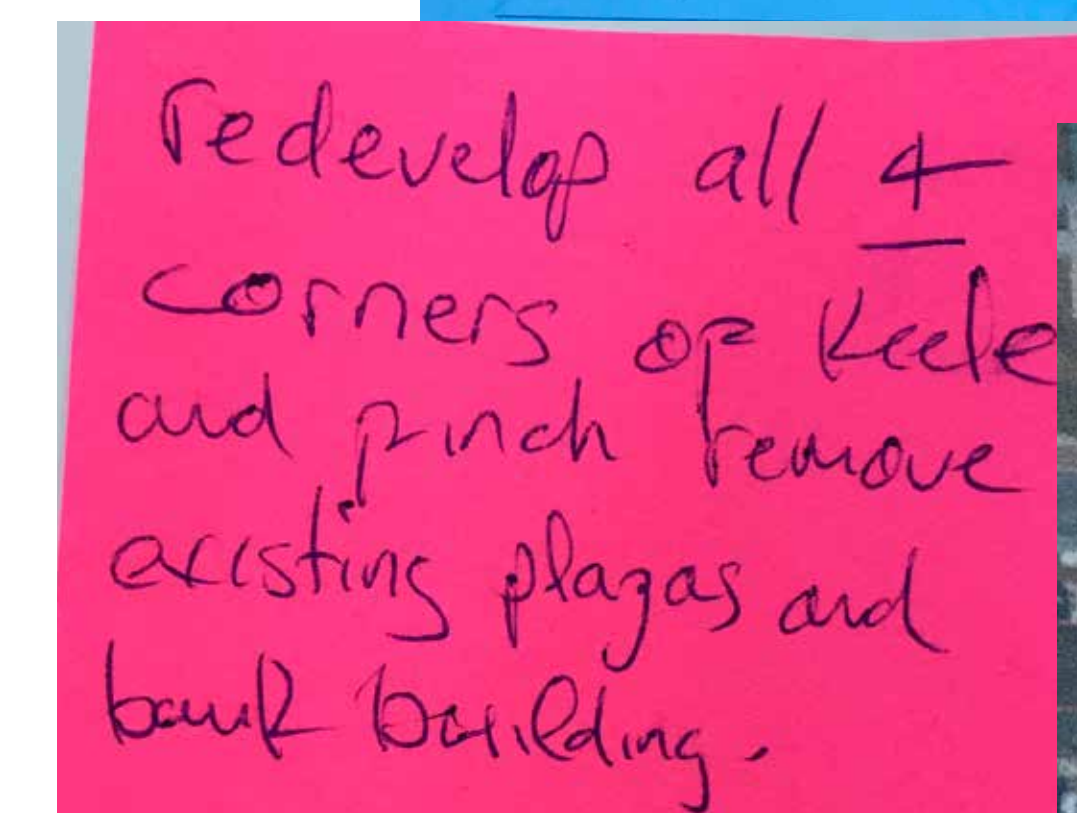 redevelop all 4
corners of Keele
and finch remove
existing plazas and
bank building.